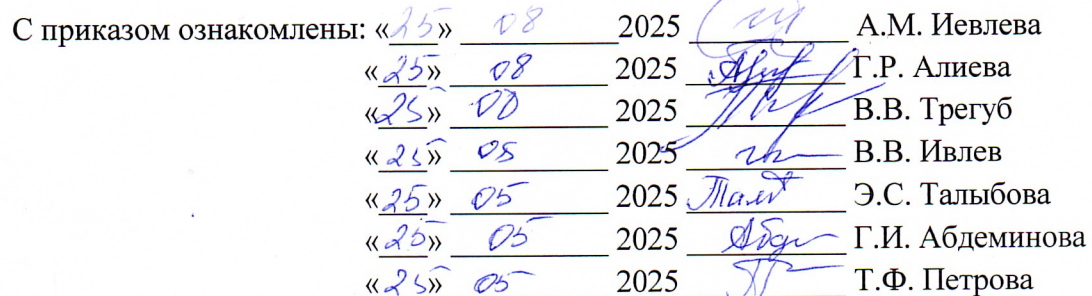 С приказом ознакомлены: «25» 08 2025 А.М. Иевлева
«25» 08 2025 Г.Р. Алиева
«25» 2025 В.В. Трегуб
«25» 2025 В.В. Ивлев
«25» 05 2025 Э.С. Талыбова
«25» 05 2025 Г.И. Абдеминова
«25» 05 2025 Т.Ф. Петрова